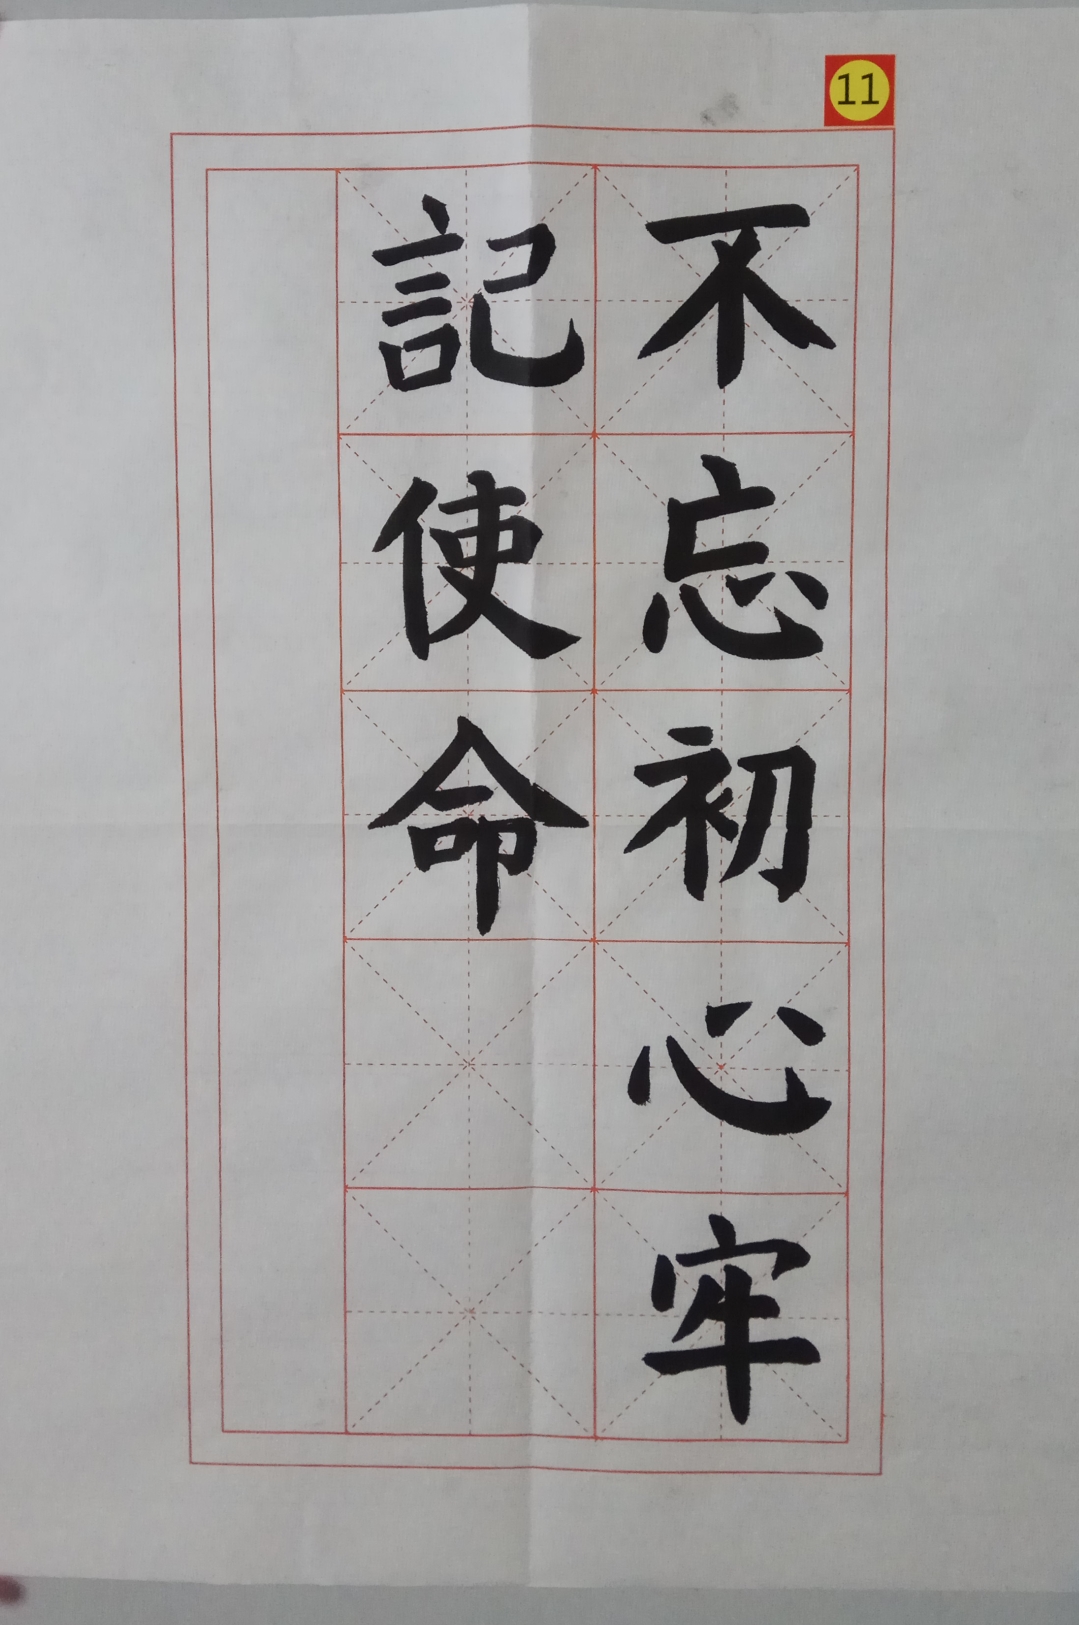 11
不忘初心牢
記使命